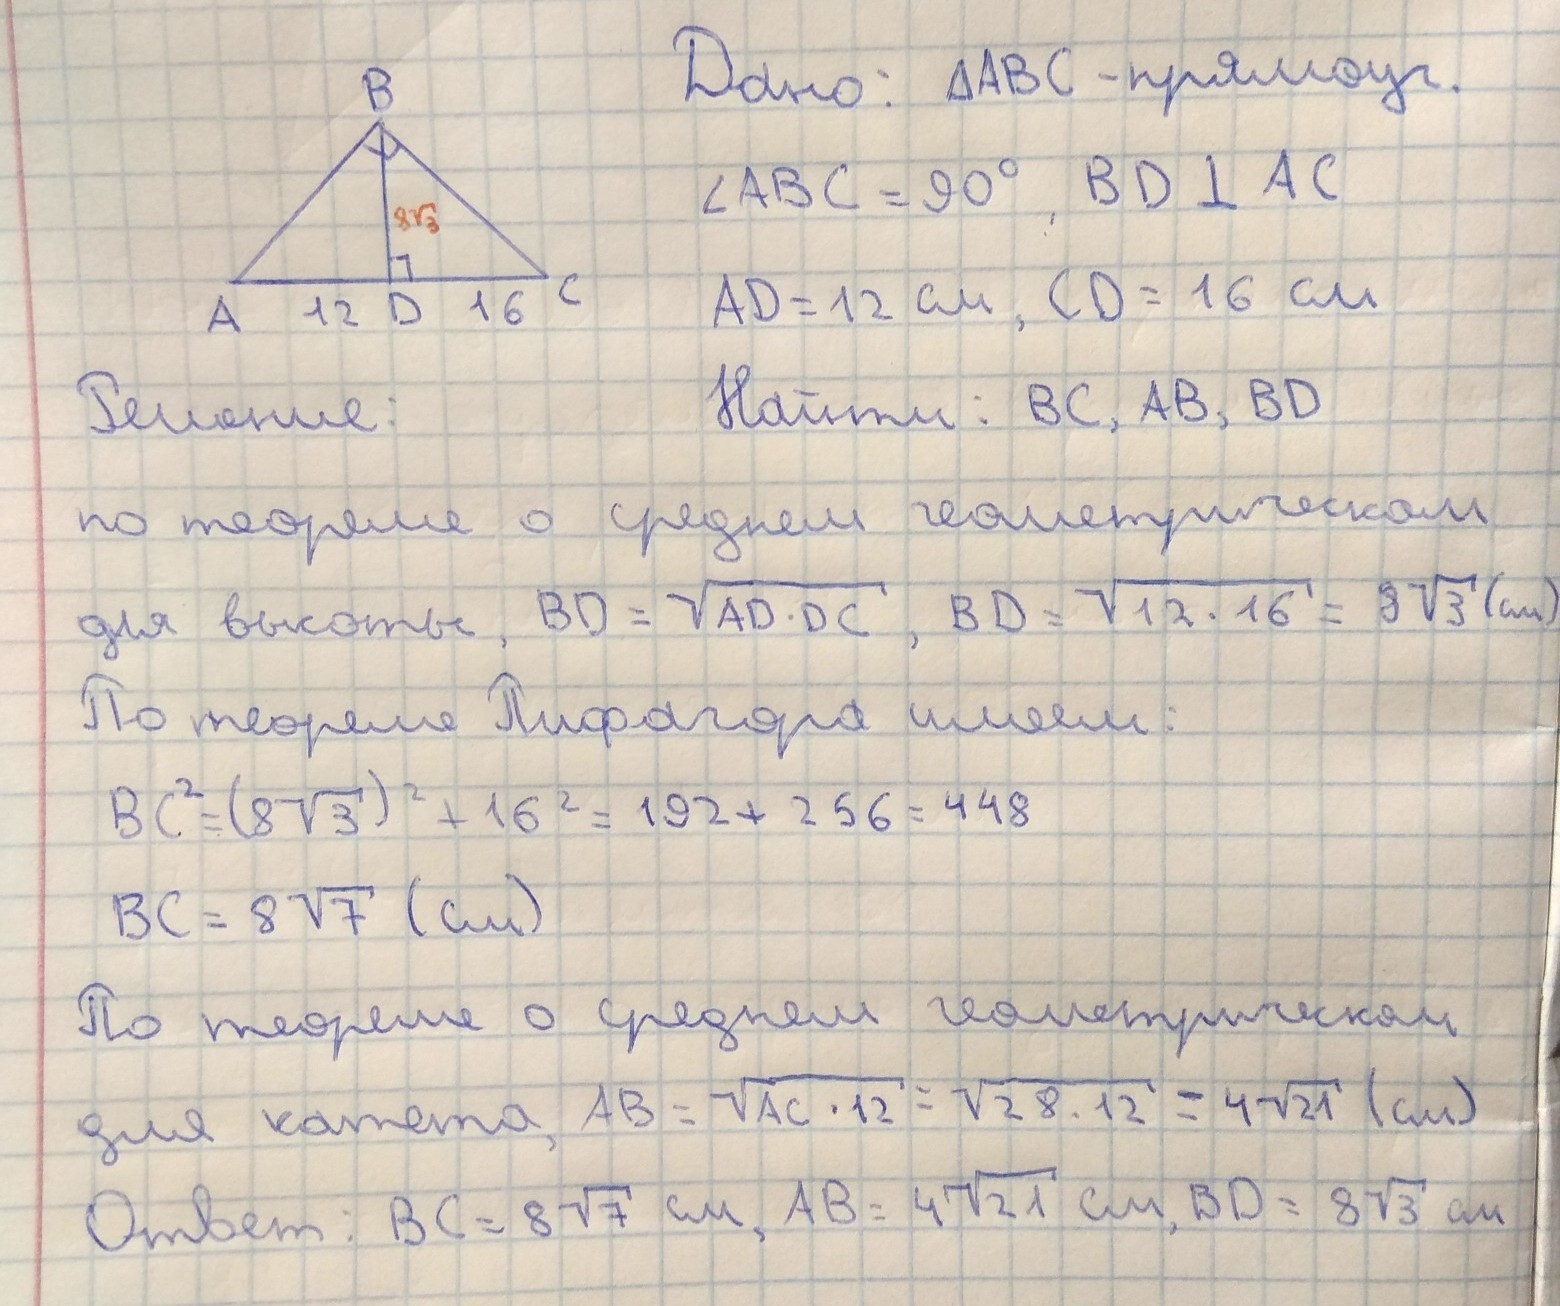 B
Дано: ΔABC - прямоуг.
∠ABC = 90°, BD ⊥ AC
8√3
AD = 12 см, CD = 16 см
A 12 D 16 C
Решение:
Найти: BC, AB, BD
по теореме о среднем геометрическом
для высоты, BD = √AD·DC, BD = √12·16 = 9√3 (см)
По теореме Пифагора имеем:
BC² = (8√3)² + 16² = 192 + 256 = 448
BC = 8√7 (см)
По теореме о среднем геометрическом
для катета, AB = √AC·12 = √28·12 = 4√21 (см)
Ответ: BC = 8√7 см, AB = 4√21 см, BD = 8√3 см